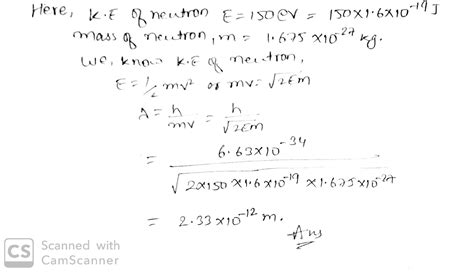 Here, K.E of neutron E = 150 eV = 150×1.6×10⁻¹⁹ J
mass of neutron, m = 1.675 ×10⁻²⁷ kg.
We, know K.E of neutron,
E = 1/2 mv² or mv = √2Em
λ = h/mv = h/√2Em
= 6.63×10⁻³⁴ / √2×150×1.6×10⁻¹⁹×1.675×10⁻²⁷
= 2.33×10⁻¹² m.
Ans
CS Scanned with
CamScanner